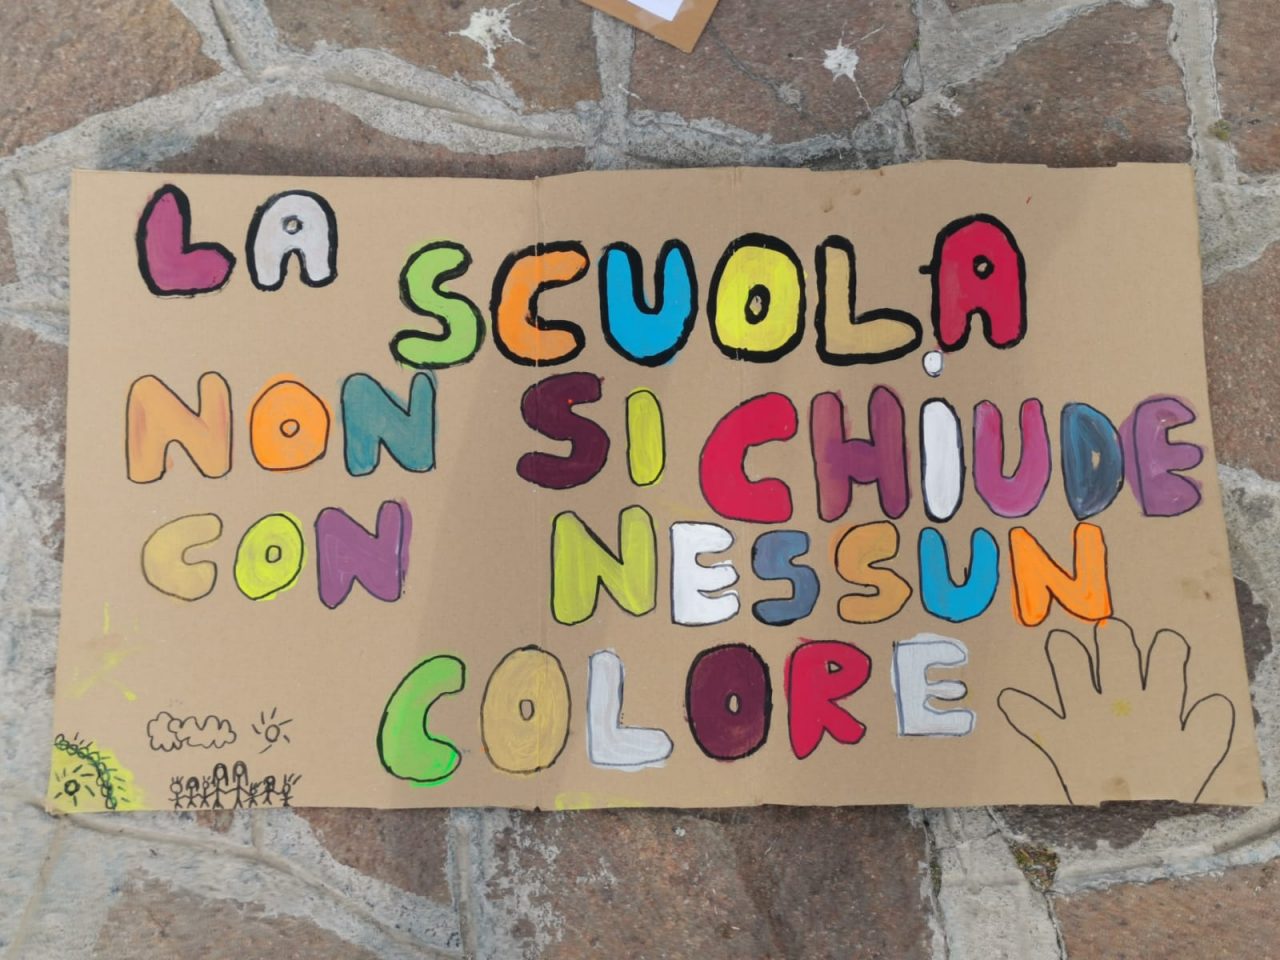 LA SCUOLA
NON SI CHIUDE
CON NESSUN
COLORE